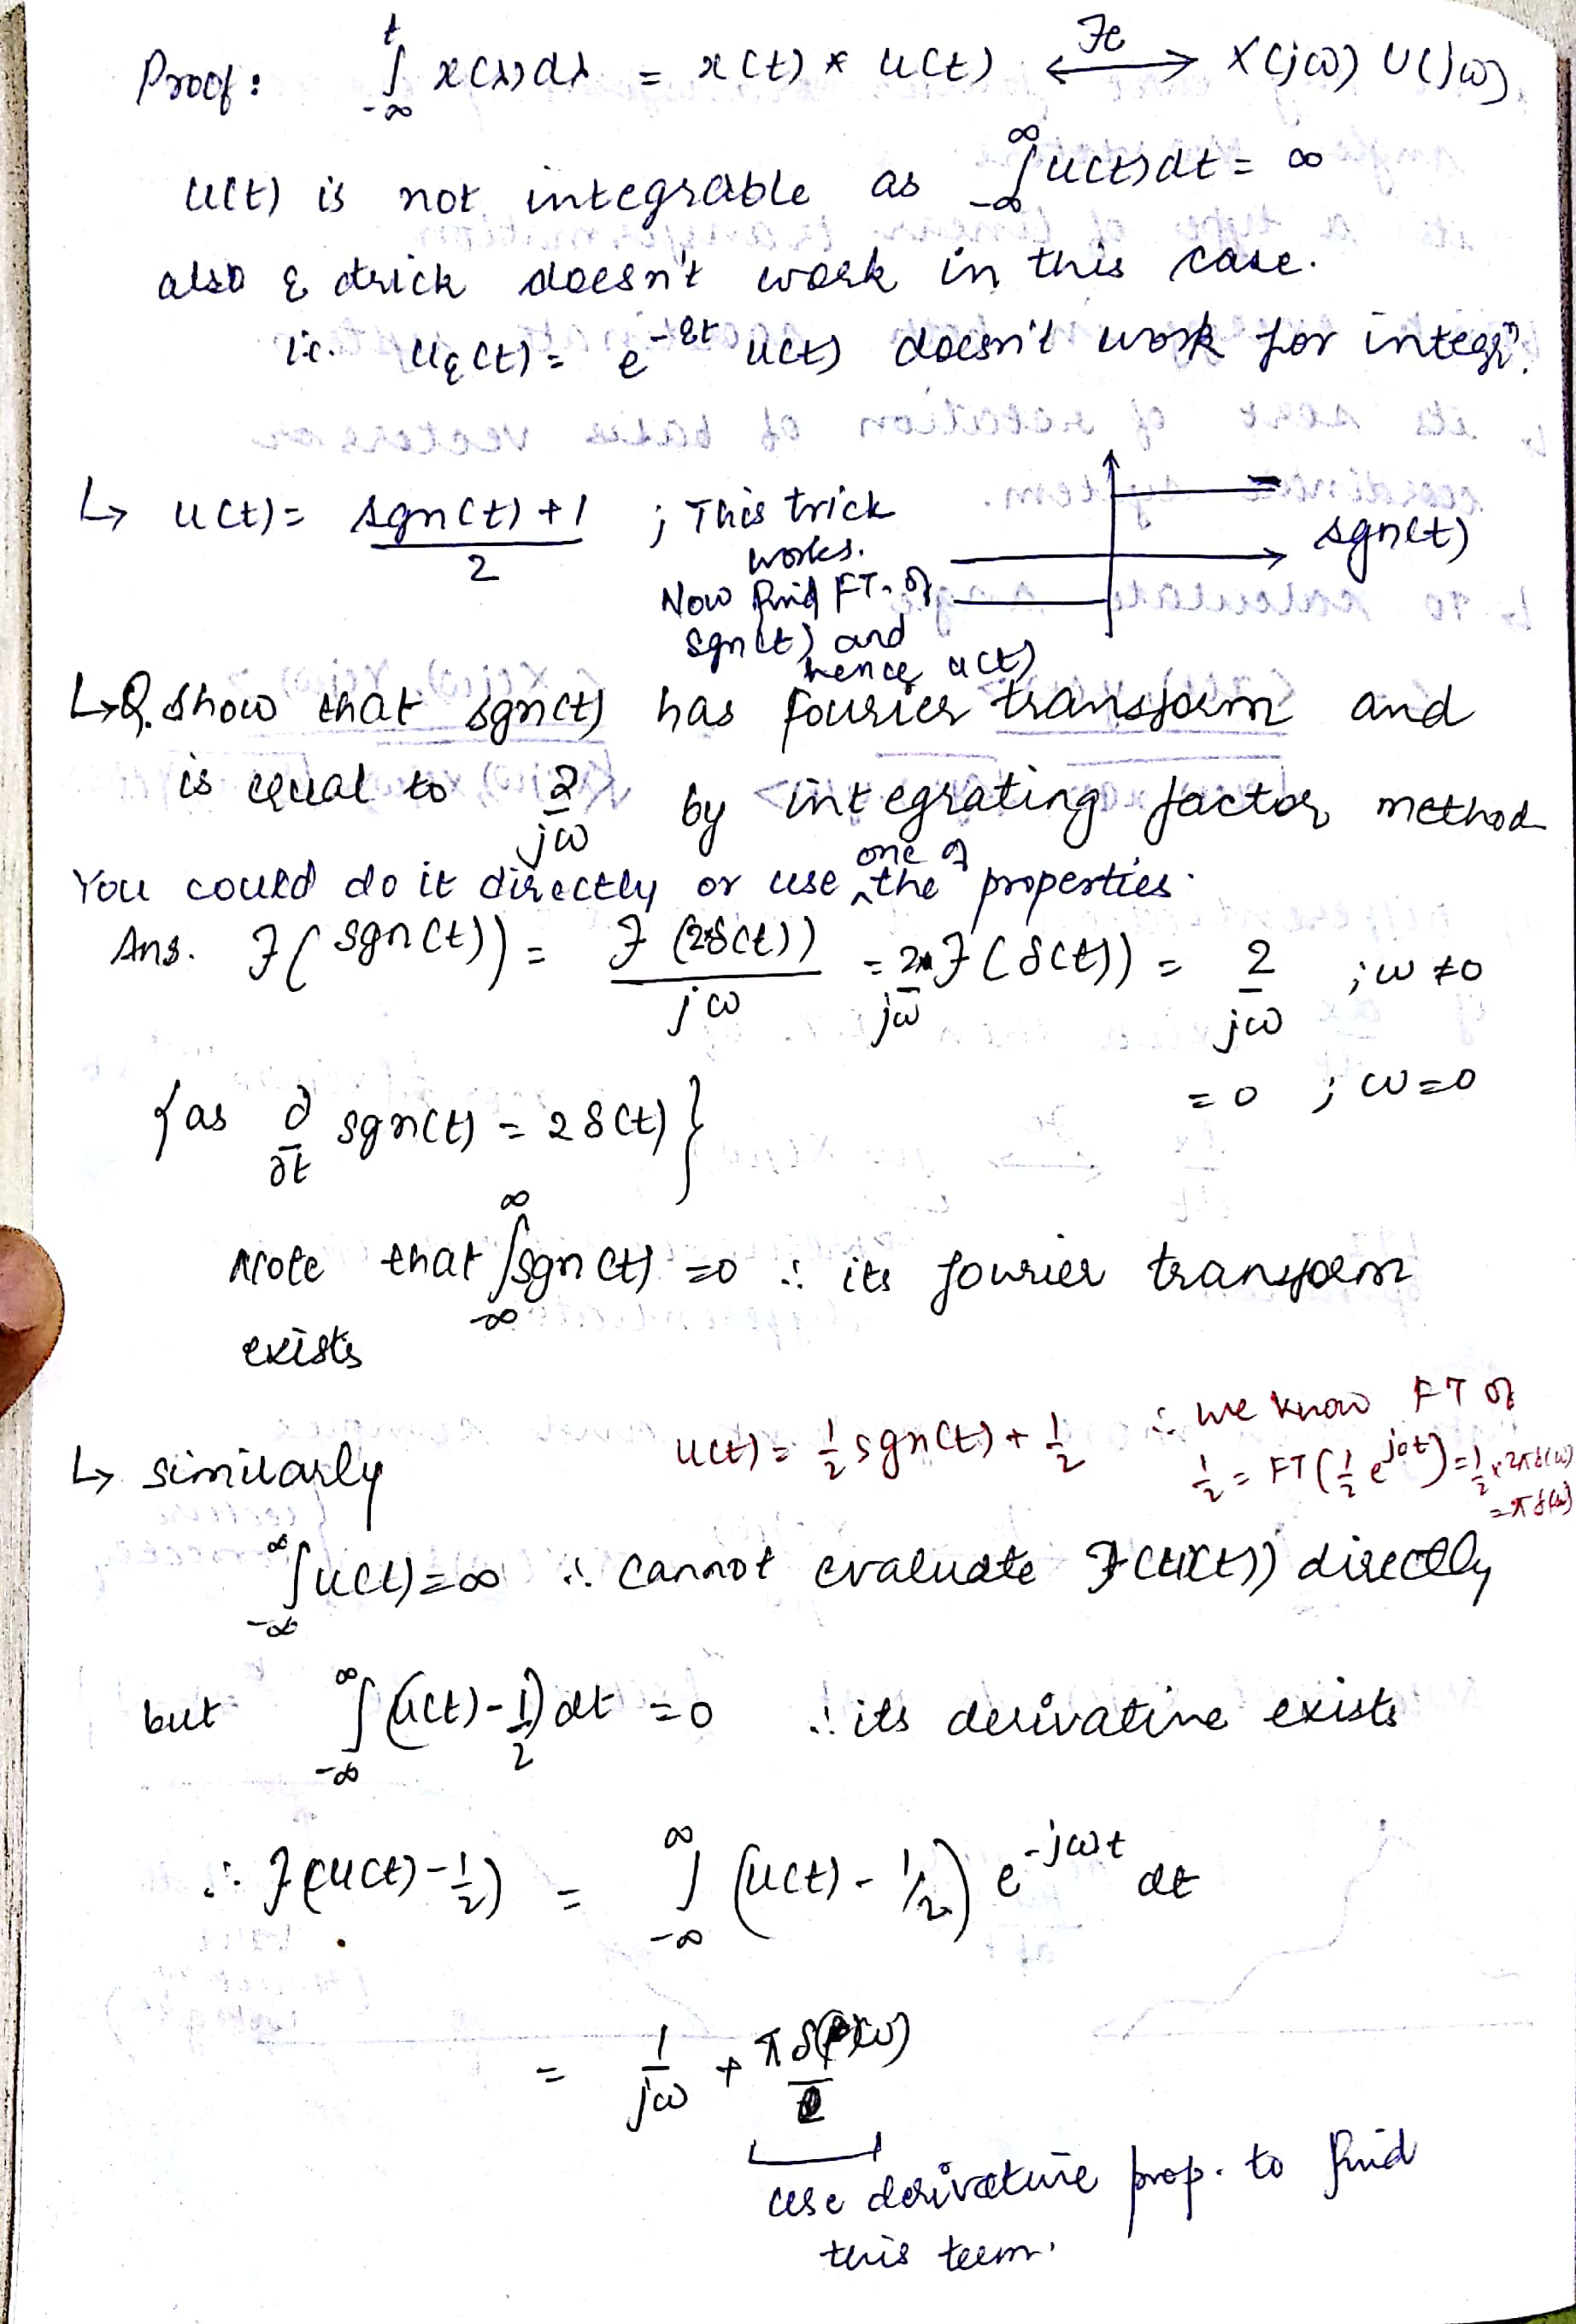 Proof: ∫_{-∞}^{t} x(λ)dλ = x(t) * u(t) ⟷ X(jω) U(jω)
u(t) is not integrable as ∫_{-∞}^{∞} u(t)dt = ∞
also ε trick doesn't work in this case.
i.e. u_ε(t) = e^{-εt} u(t) doesn't work for integrⁿ.
↳ u(t) = (sgn(t) + 1)/2 ; This trick works.
sgn(t)
Now find FT. of
sgn(t) and
hence u(t)
↳ Q. Show that sgn(t) has fourier transform and
is equal to 2/jω by integrating factor method
You could do it directly or use one of the properties.
Ans. F(sgn(t)) = F(2δ(t))/jω = 2/jω F(δ(t)) = 2/jω ; ω ≠ 0
= 0 ; ω = 0
{as ∂/∂t sgn(t) = 2δ(t)}
Note that ∫_{-∞}^{∞} sgn(t) = 0 ∴ its fourier transform
exists
↳ similarly
u(t) = 1/2 sgn(t) + 1/2 ∴ we know FT of
1/2 = FT(1/2 e^{j0t}) = 1/2 × 2πδ(ω)
= πδ(ω)
∫_{-∞}^{∞} u(t) = ∞ ∴ cannot evaluate F(u(t)) directly
but ∫_{-∞}^{∞} (u(t) - 1/2) dt = 0 ∴ its derivative exists
∴ F(u(t) - 1/2) = ∫_{-∞}^{∞} (u(t) - 1/2) e^{-jωt} dt
= 1/jω + πδ(ω)
use derivative prop. to find
this term.